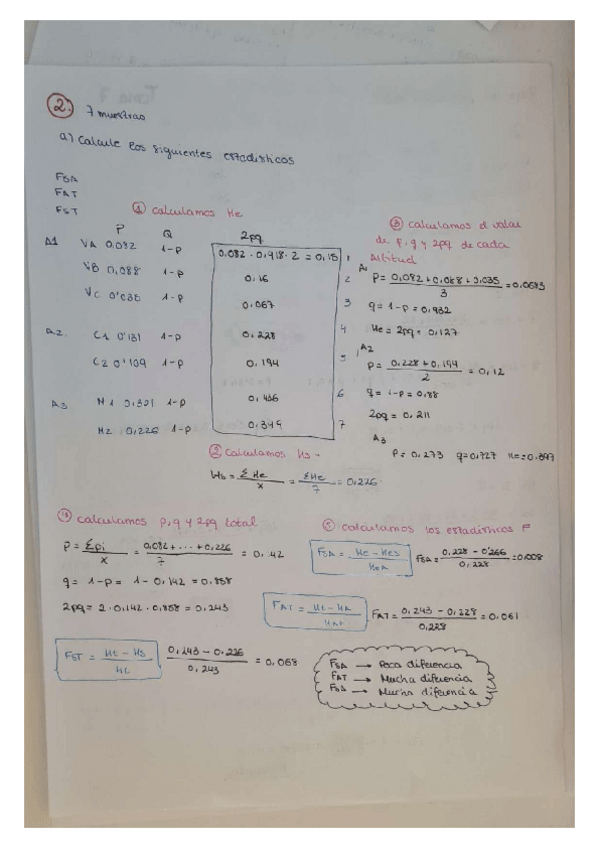 2. 7 muestras
a) Calcule los siguientes estadísticos
FSA
FAT
FST
① calculamos He
P Q 2pq
A1 VA 0,082 1-p 0,082 · 0,918 · 2 = 0,15 1
VB 0,088 1-p 0,16 2
VC 0'035 1-p 0,067 3
A2. C1 0'131 1-p 0,228 4
C2 0'109 1-p 0,194 5
A3 M1 0,321 1-p 0,436 6
M2 0,226 1-p 0,349 7
② Calculamos Hs -
Hs = ΣHe / x = ΣHe / 7 = 0,226
③ calculamos el valor
de p, q y 2pq de cada
Altitud
A1
p = 0,082 + 0,088 + 0,035 / 3 = 0,0683
q = 1-p = 0,932
He = 2pq = 0,127
A2
p = 0,228 + 0,194 / 2 = 0,12
q = 1-p = 0,88
2pq = 0,211
A3
P = 0,273 q = 0,727 He = 0,397
④ calculamos p, q y 2pq total
P = Σpi / x = 0,082 + ... + 0,226 / 7 = 0,142
q = 1-p = 1 - 0,142 = 0,858
2pq = 2 · 0,142 · 0,858 = 0,243
FST = Ht - Hs / Ht
0,243 - 0,226 / 0,243 = 0,068
⑤ calculamos los estadísticos F
FSA = 0,228 - 0'266 / 0,228 = 0,008
FAT = 0,243 - 0,228 / 0,228 = 0,061
FSA → Poca diferencia
FAT → Mucha diferencia
→ Mucha diferencia